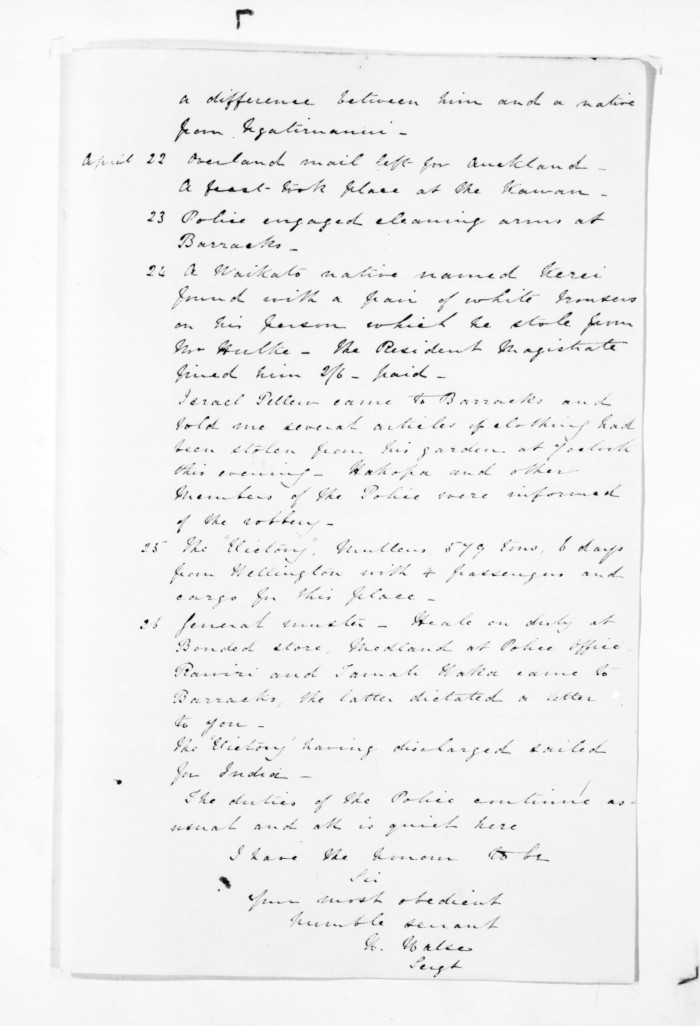 a difference between him and a native
from Ngatimaniu -
April 22 Overland mail left for Auckland -
A feast took place at the Kawau -
23 Police engaged cleaning arms at
Barracks -
24 A Waikato native named Kerei
found with a pair of white trousers
on his person which he stole from
Mr Hulke - The Resident Magistrate
fined him 2/6 - paid -
Israel Pellew came to Barracks and
told me several articles of clothing had
been stolen from his garden at 7 oclock
this evening - Hakopa and other
Members of the Police were informed
of the robbery -
25 The "Victory", Mullens 579 tons, 6 days
from Wellington with 4 passengers and
cargo for this place -
26 General muster - Heale on duty at
Bonded store, Medland at Police Office -
Rawiri and Tamati Waka came to
Barracks, the latter dictated a letter
to you -
The 'Victory' having discharged sailed
for India -
The duties of the Police continue as
usual and all is quiet here
I have the honour to be
Sir
Your most obedient
humble servant
H. Halse
Sergt